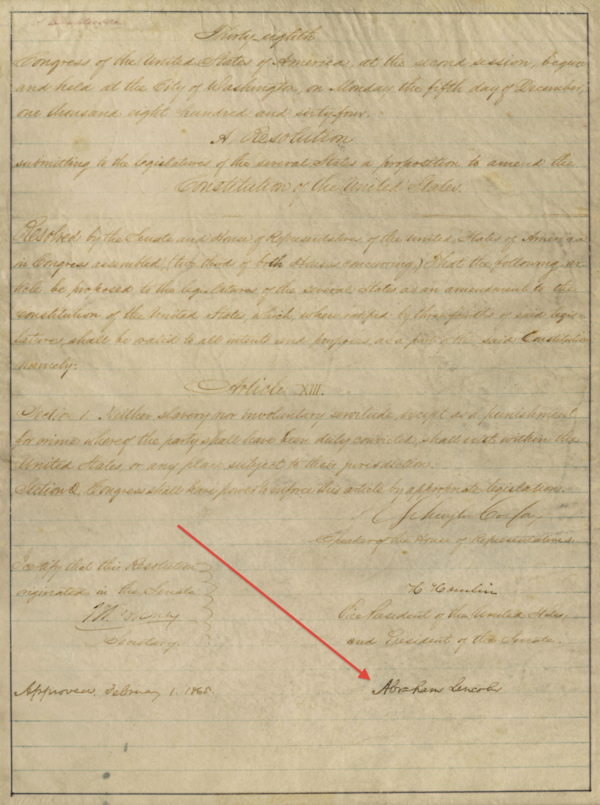 Thirty-eighth
Congress of the United States of America, at the second session, begun
and held at the City of Washington, on Monday the fifth day of December,
one thousand eight hundred and sixty-four.
A Resolution
submitting to the legislatures of the several States a proposition to amend the
Constitution of the United States.
Resolved by the Senate and House of Representatives of the United States of America
in Congress assembled, (two thirds of both Houses concurring,) That the following ar-
ticle be proposed to the legislatures of the several States as an amendment to the
constitution of the United States, which, when ratified by three-fourths of said legis-
latures, shall be valid to all intents and purposes, as a part of the said Constitution
namely:
Article XIII.
Section 1. Neither slavery nor involuntary servitude, except as a punishment
for crime whereof the party shall have been duly convicted, shall exist within the
United States, or any place subject to their jurisdiction.
Section 2. Congress shall have power to enforce this article by appropriate legislation.
Schuyler Colfax
Speaker of the House of Representatives
I certify that this Resolution
originated in the Senate
Secretary
H Hamlin
Vice President of the United States,
and President of the Senate.
Approved, February 1. 1865.
Abraham Lincoln